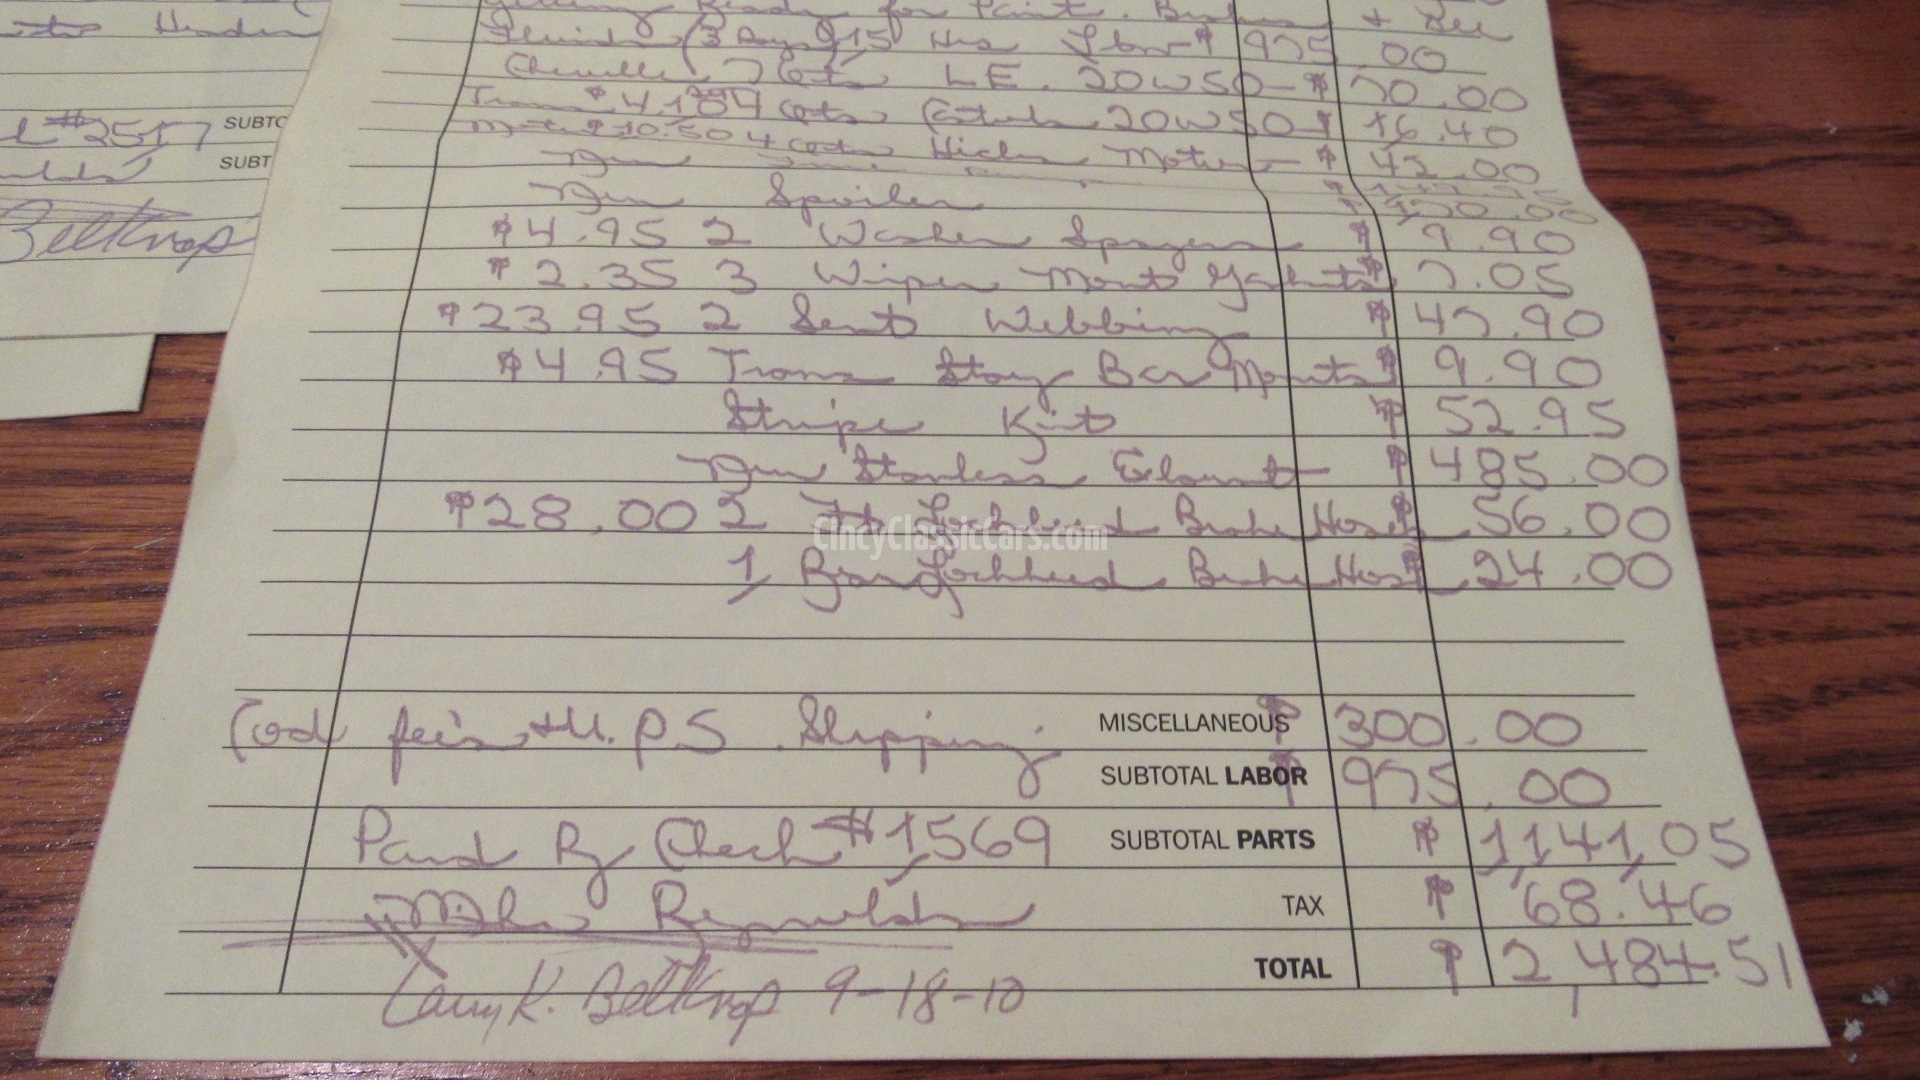 Header
Getting Ready for Paint. Brakes +
(3 Days) 15 Hrs Labor $ 975.00
Chevelle 7 Cots LE. 20W50 - $ 70.00
Trans $4.10 4 Cots Castrol 20W50 $ 16.40
$10.50 4 Cots Motor $ 42.00
#2517
SUBTO
SUBT
Belknap
New
New Spoiler
$4.95 2 Washer Sprayers $ 9.90
$2.35 3 Wiper Mount Gaskets $ 7.05
$23.95 2 Seat Webbing $ 47.90
$4.95 Trans Stay Bar Mounts $ 9.90
Stripe Kit $ 52.95
New Stanless Exhaust $ 485.00
$28.00 2 Ft Lockheed Brake Hoses $ 56.00
1 Rear Lockheed Brake Hose $ 24.00
CincyClassicCars.com
Cod fee's + U.P.S. Shipping MISCELLANEOUS $ 300.00
SUBTOTAL LABOR $ 975.00
Paid By Check #1569 SUBTOTAL PARTS $ 1,141.05
Mike Reynolds TAX $ 68.46
TOTAL $ 2,484.51
Larry K. Belknap 9-18-10